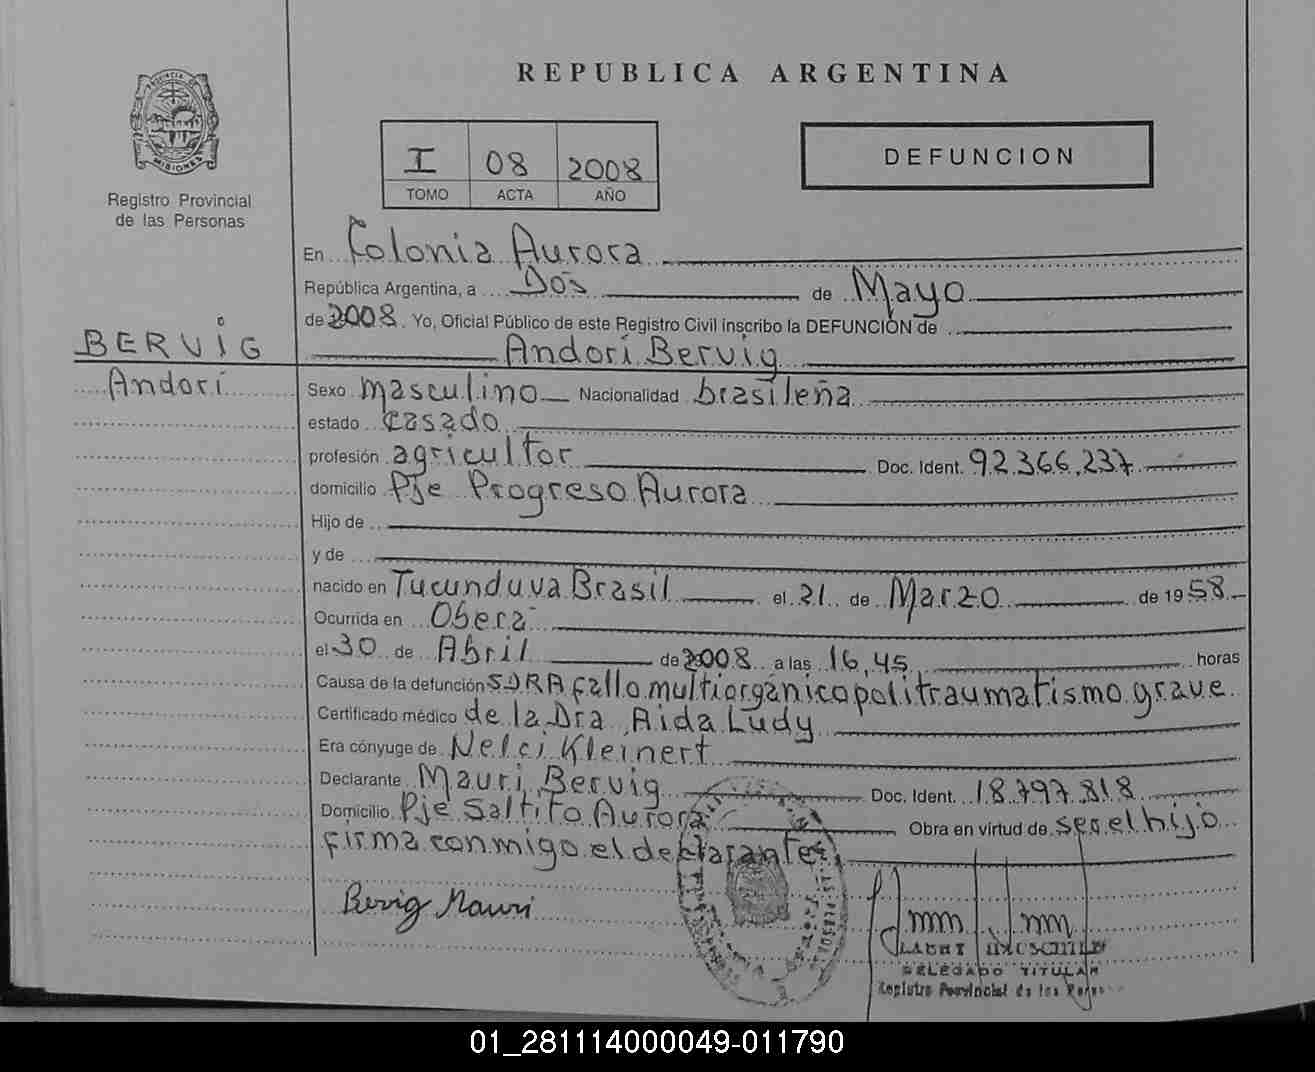 REPUBLICA ARGENTINA
PROVINCIA DE MISIONES
Registro Provincial
de las Personas
I 08 2008
TOMO ACTA AÑO
DEFUNCION
En Colonia Aurora
República Argentina, a Dos de Mayo
de 2008. Yo, Oficial Público de este Registro Civil inscribo la DEFUNCIÓN de
Andorí Bervig
BERVIG
Andorí
Sexo masculino Nacionalidad brasileña
estado casado
profesión agricultor Doc. Ident. 92.366.237
domicilio Pje Progreso Aurora
Hijo de
y de
nacido en Tucunduva Brasil el 21 de Marzo de 1958
Ocurrida en Oberá
el 30 de Abril de 2008 a las 16,45 horas
Causa de la defunción SDRA fallo multiorgánico politraumatismo grave.
Certificado médico de la Dra. Aida Ludy
Era cónyuge de Nelci Kleinert
Declarante Mauri Bervig Doc. Ident. 18.797.818
Domicilio Pje Saltito Aurora Obra en virtud de ser el hijo
firma conmigo el declarante
Bervig Mauri
DELEGADO TITULAR
Registro Provincial de las
01_281114000049-011790